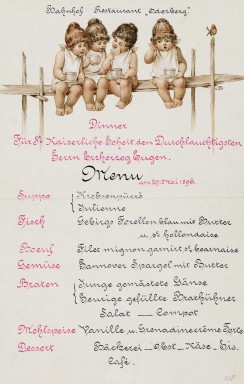 Bahnhof Restaurant "Oderberg".
Dinner
Für Se Kaiserliche Hoheit den Durchlauchtigsten
Herrn Erzherzog Eugen.
Menu
am 29. Mai 1896.
Suppe
Krebsenpüree
Julienne
Fisch
Gebirgs Forellen blau mit Butter
u. sc. hollandaise
Boeuf
Filet mignon garnirt sc. bearnaise
Gemüse
Hannover Spargel mit Butter
Braten
Junge gemästete Gänse
Heurige gefüllte Brathühner
Salat — Compot
Mehlspeise
Vanille u. Grenadinecrème Torte
Dessert
Bäckerei — Obst — Käse — Eis.
Café.